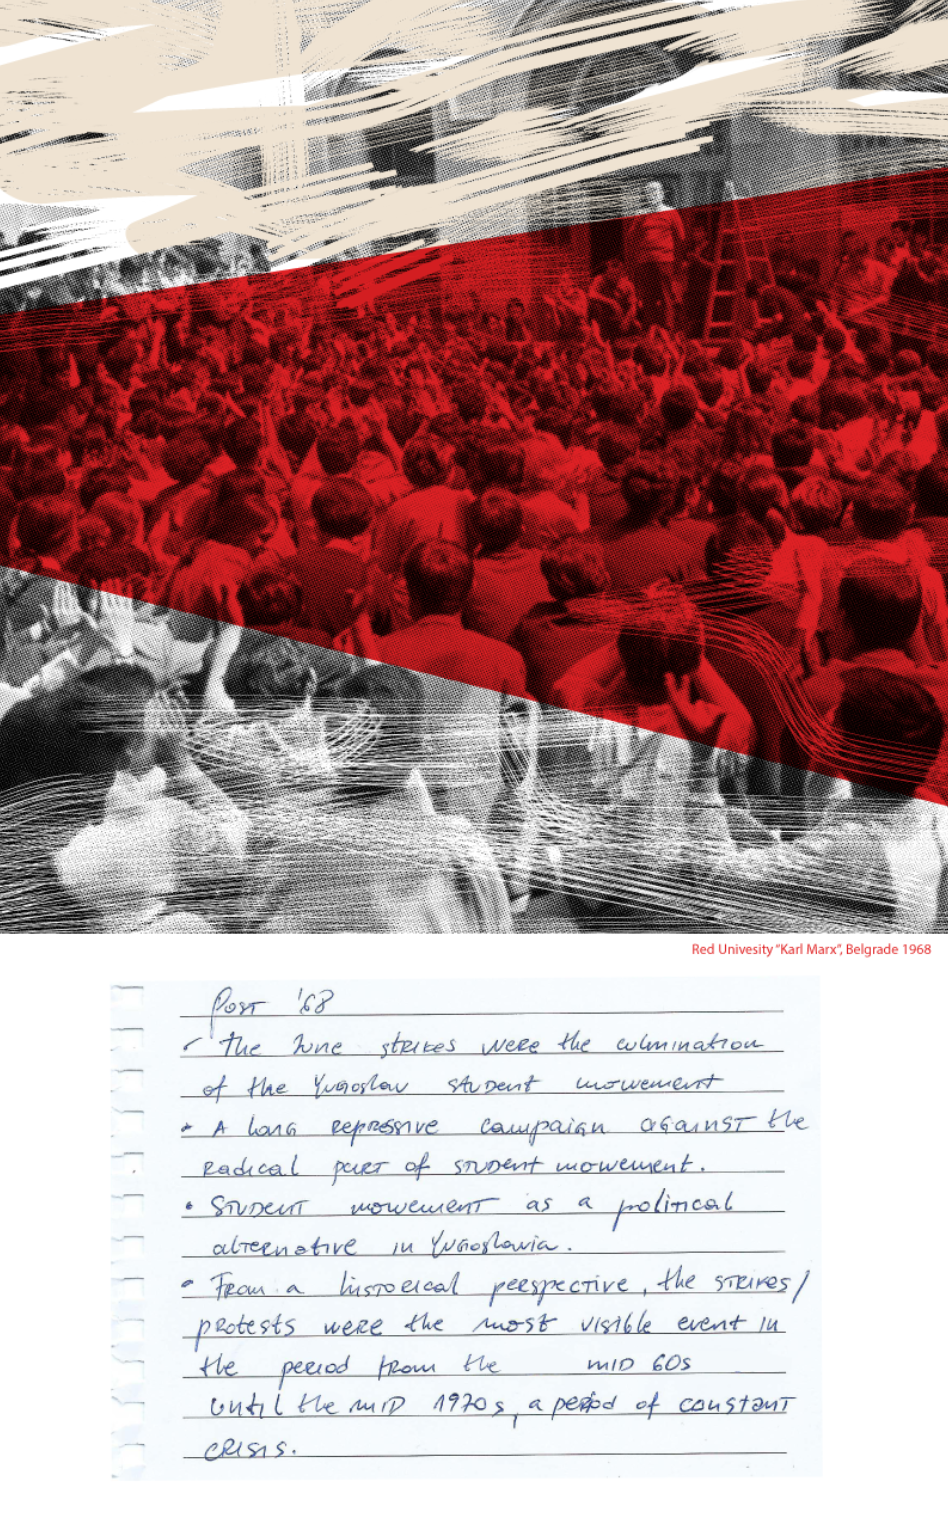 Red Univesity "Karl Marx", Belgrade 1968
Post '68
The June strikes were the culmination
of the Yugoslav student mowement
• A long repressive campaign against the
radical part of student mowement.
• Student mowement as a political
alternative in Yugoslawia.
• From a historical perspective, the strikes/
protests were the most visible event in
the period from the mid 60s
until the mid 1970s, a period of constant
crisis.